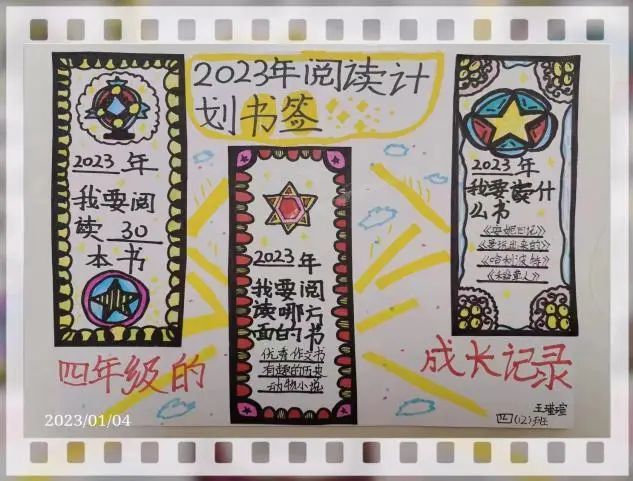 2023年阅读计
划书签
2023 年
我要阅
读 30
本书
2023 年
我要阅
读哪方
面的书
优秀作文书
有趣的历史
动物小说
2023 年
我要读什
么书
《哈利波特》
《稻草人》
四年级的
成长记录
四(12)班
2023/01/04